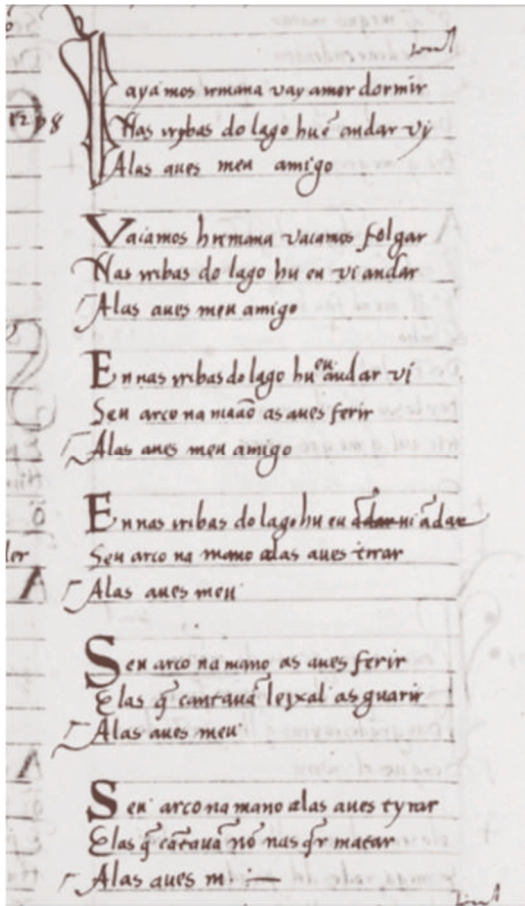 tornel
Vayamos irmana vay amor dormir
1298
Nas rribas do lago hu eũ andar vj
Alas aues meu amigo
Vaiamos hirmana vaiamos folgar
Nas rribas do lago hu eu vi andar
Alas aues meu amigo
En nas rribas do lago hu eu andar vi
Seu arco na maão as aues ferir
Alas aues meu amigo
En nas rribas do lago hu eu ãdar ui ãdar
Seu arco na mano alas aues tirar
Alas aues meu
Seu arco na mano as aues ferir
Elas q̃ cantauã leixal as guarir
Alas aues meu
Seu arco na mano alas aues tyrar
Elas q̃ cãtauã nõ nas q̃r matar
Alas aues m